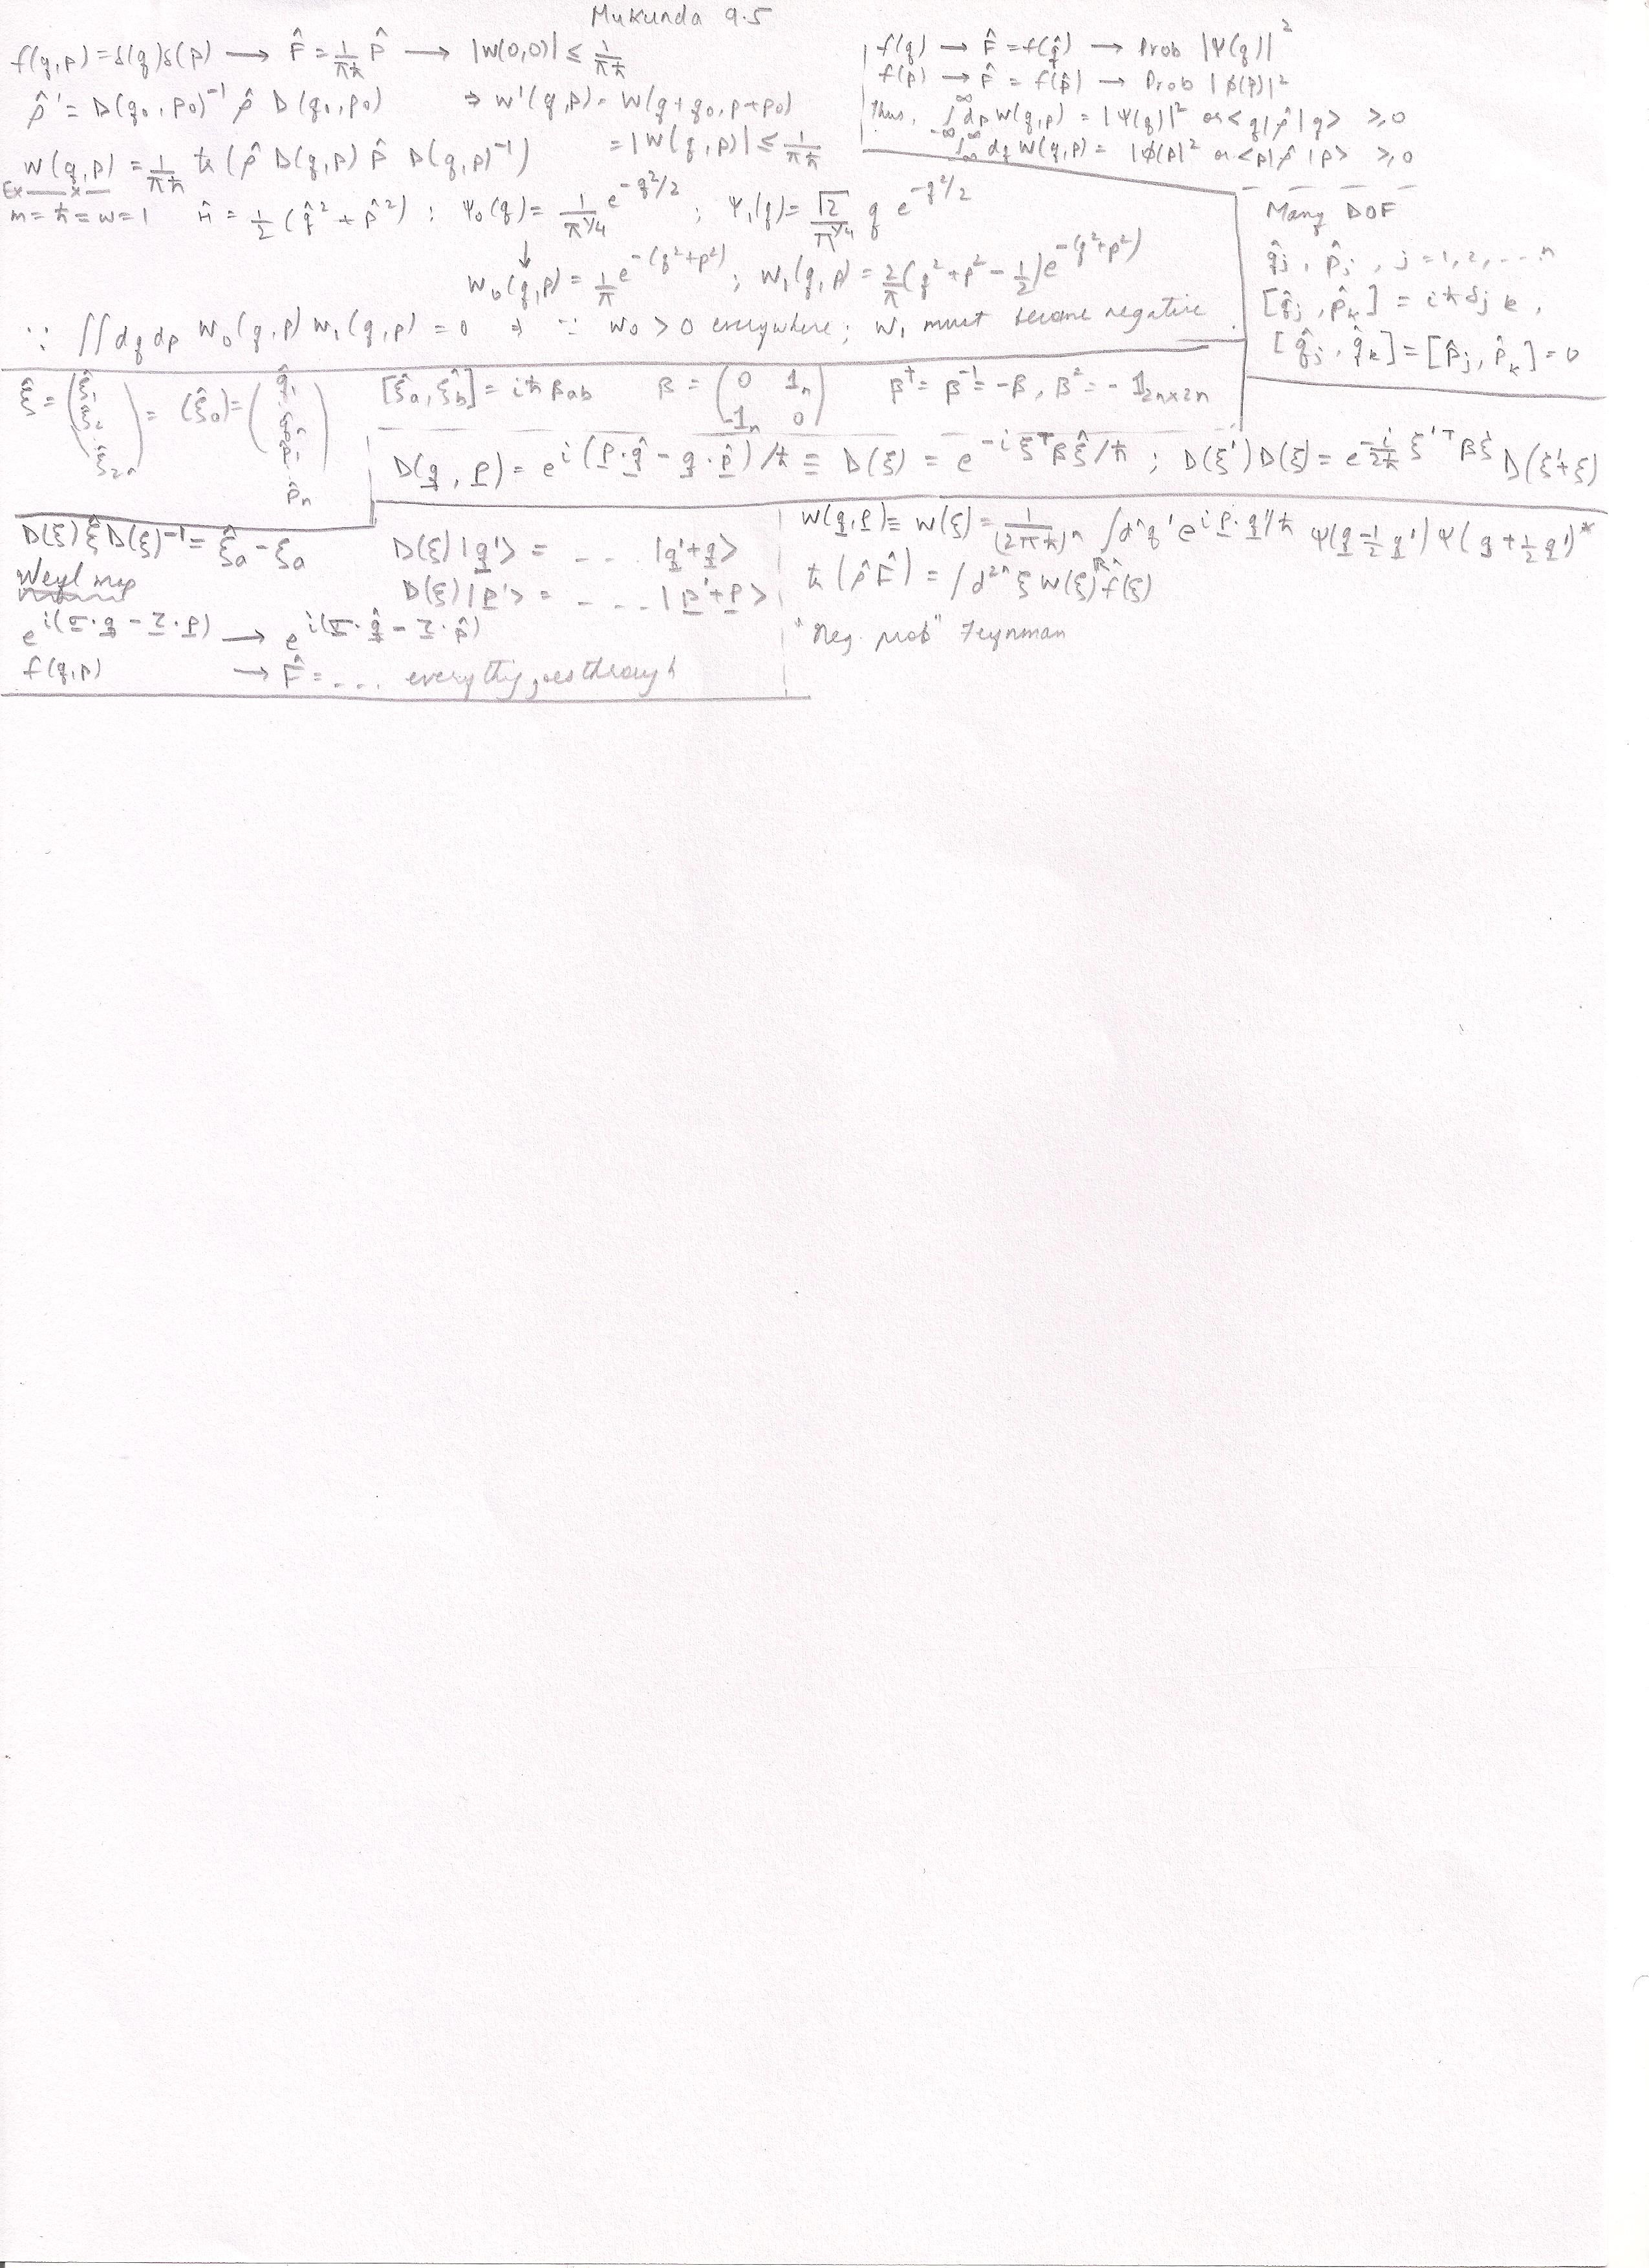 Mukunda 9.5
f(q,p)=δ(q)δ(p) ⟶ F̂ = 1/πħ P̂ ⟶ |W(0,0)| ≤ 1/πħ
ρ̂' = D(q₀,p₀)⁻¹ ρ̂ D(q₀,p₀) ⇒ W'(q,p) = W(q+q₀, p+p₀)
W(q,p) = 1/πħ tr(ρ̂ D(q,p) P̂ D(q,p)⁻¹) = |W(q,p)| ≤ 1/πħ
f(q) → F̂ = f(q̂) → Prob |Ψ(q)|²
f(p) → F̂ = f(p̂) → Prob |ϕ(p)|²
Thus, ∫_{-∞}^{∞} dp W(q,p) = |Ψ(q)|² or <q|ρ̂|q> ≥0
∫_{-∞}^{∞} dq W(q,p) = |ϕ(p)|² or <p|ρ̂|p> ≥0
Ex ——x—
m=ħ=w=1 Ĥ = 1/2 (q̂² + p̂²) ; Ψ₀(q) = 1/π^{1/4} e^{-q²/2} ; Ψ₁(q) = √2/π^{1/4} q e^{-q²/2}
↓
W₀(q,p) = 1/π e^{-(q²+p²)} ; W₁(q,p) = 2/π (q²+p²-1/2) e^{-(q²+p²)}
∵ ∬dq dp W₀(q,p) W₁(q,p) = 0 ⇒ ∵ W₀ > 0 everywhere; W₁ must become negative
Many DOF
q̂ⱼ, p̂ⱼ, j=1,2,...n
[q̂ⱼ, p̂ₖ] = iħδⱼₖ,
[q̂ⱼ, q̂ₖ] = [p̂ⱼ, p̂ₖ] = 0
ξ̂ = (ξ̂₁ ξ̂₂ ⋮ ξ̂₂ₙ) = (ξ̂ₐ) = (q̂₁ ⋮ q̂ₙ p̂₁ ⋮ p̂ₙ)
[ξ̂ₐ, ξ̂_b] = iħ β_ab β = (0 1ₙ -1ₙ 0) β^† = β⁻¹ = -β, β² = -1_{2n×2n}
D(q, p) = e^{i(p·q̂ - q·p̂)/ħ} ≡ D(ξ) = e^{-iξ^Tβξ̂/ħ} ; D(ξ')D(ξ) = e^{-i/2ħ ξ'^Tβξ} D(ξ'+ξ)
D(ξ)ξ̂D(ξ)⁻¹ = ξ̂ₐ - ξₐ
D(ξ)|q'> = ... |q'+q>
D(ξ)|p'> = .... |p'+p>
Weyl map
e^{i(σ·q - τ·p)} → e^{i(σ·q̂ - τ·p̂)}
f(q,p) → F̂ = .... everything goes through
W(q,p) ≡ W(ξ) = 1/(2πħ)ⁿ ∫_{Rⁿ} dⁿq' e^{ip·q'/ħ} Ψ(q-1/2 q') Ψ(q+1/2 q')*
tr(ρ̂F̂) = ∫d²ⁿξ W(ξ) f(ξ)
"Neg. prob" Feynman